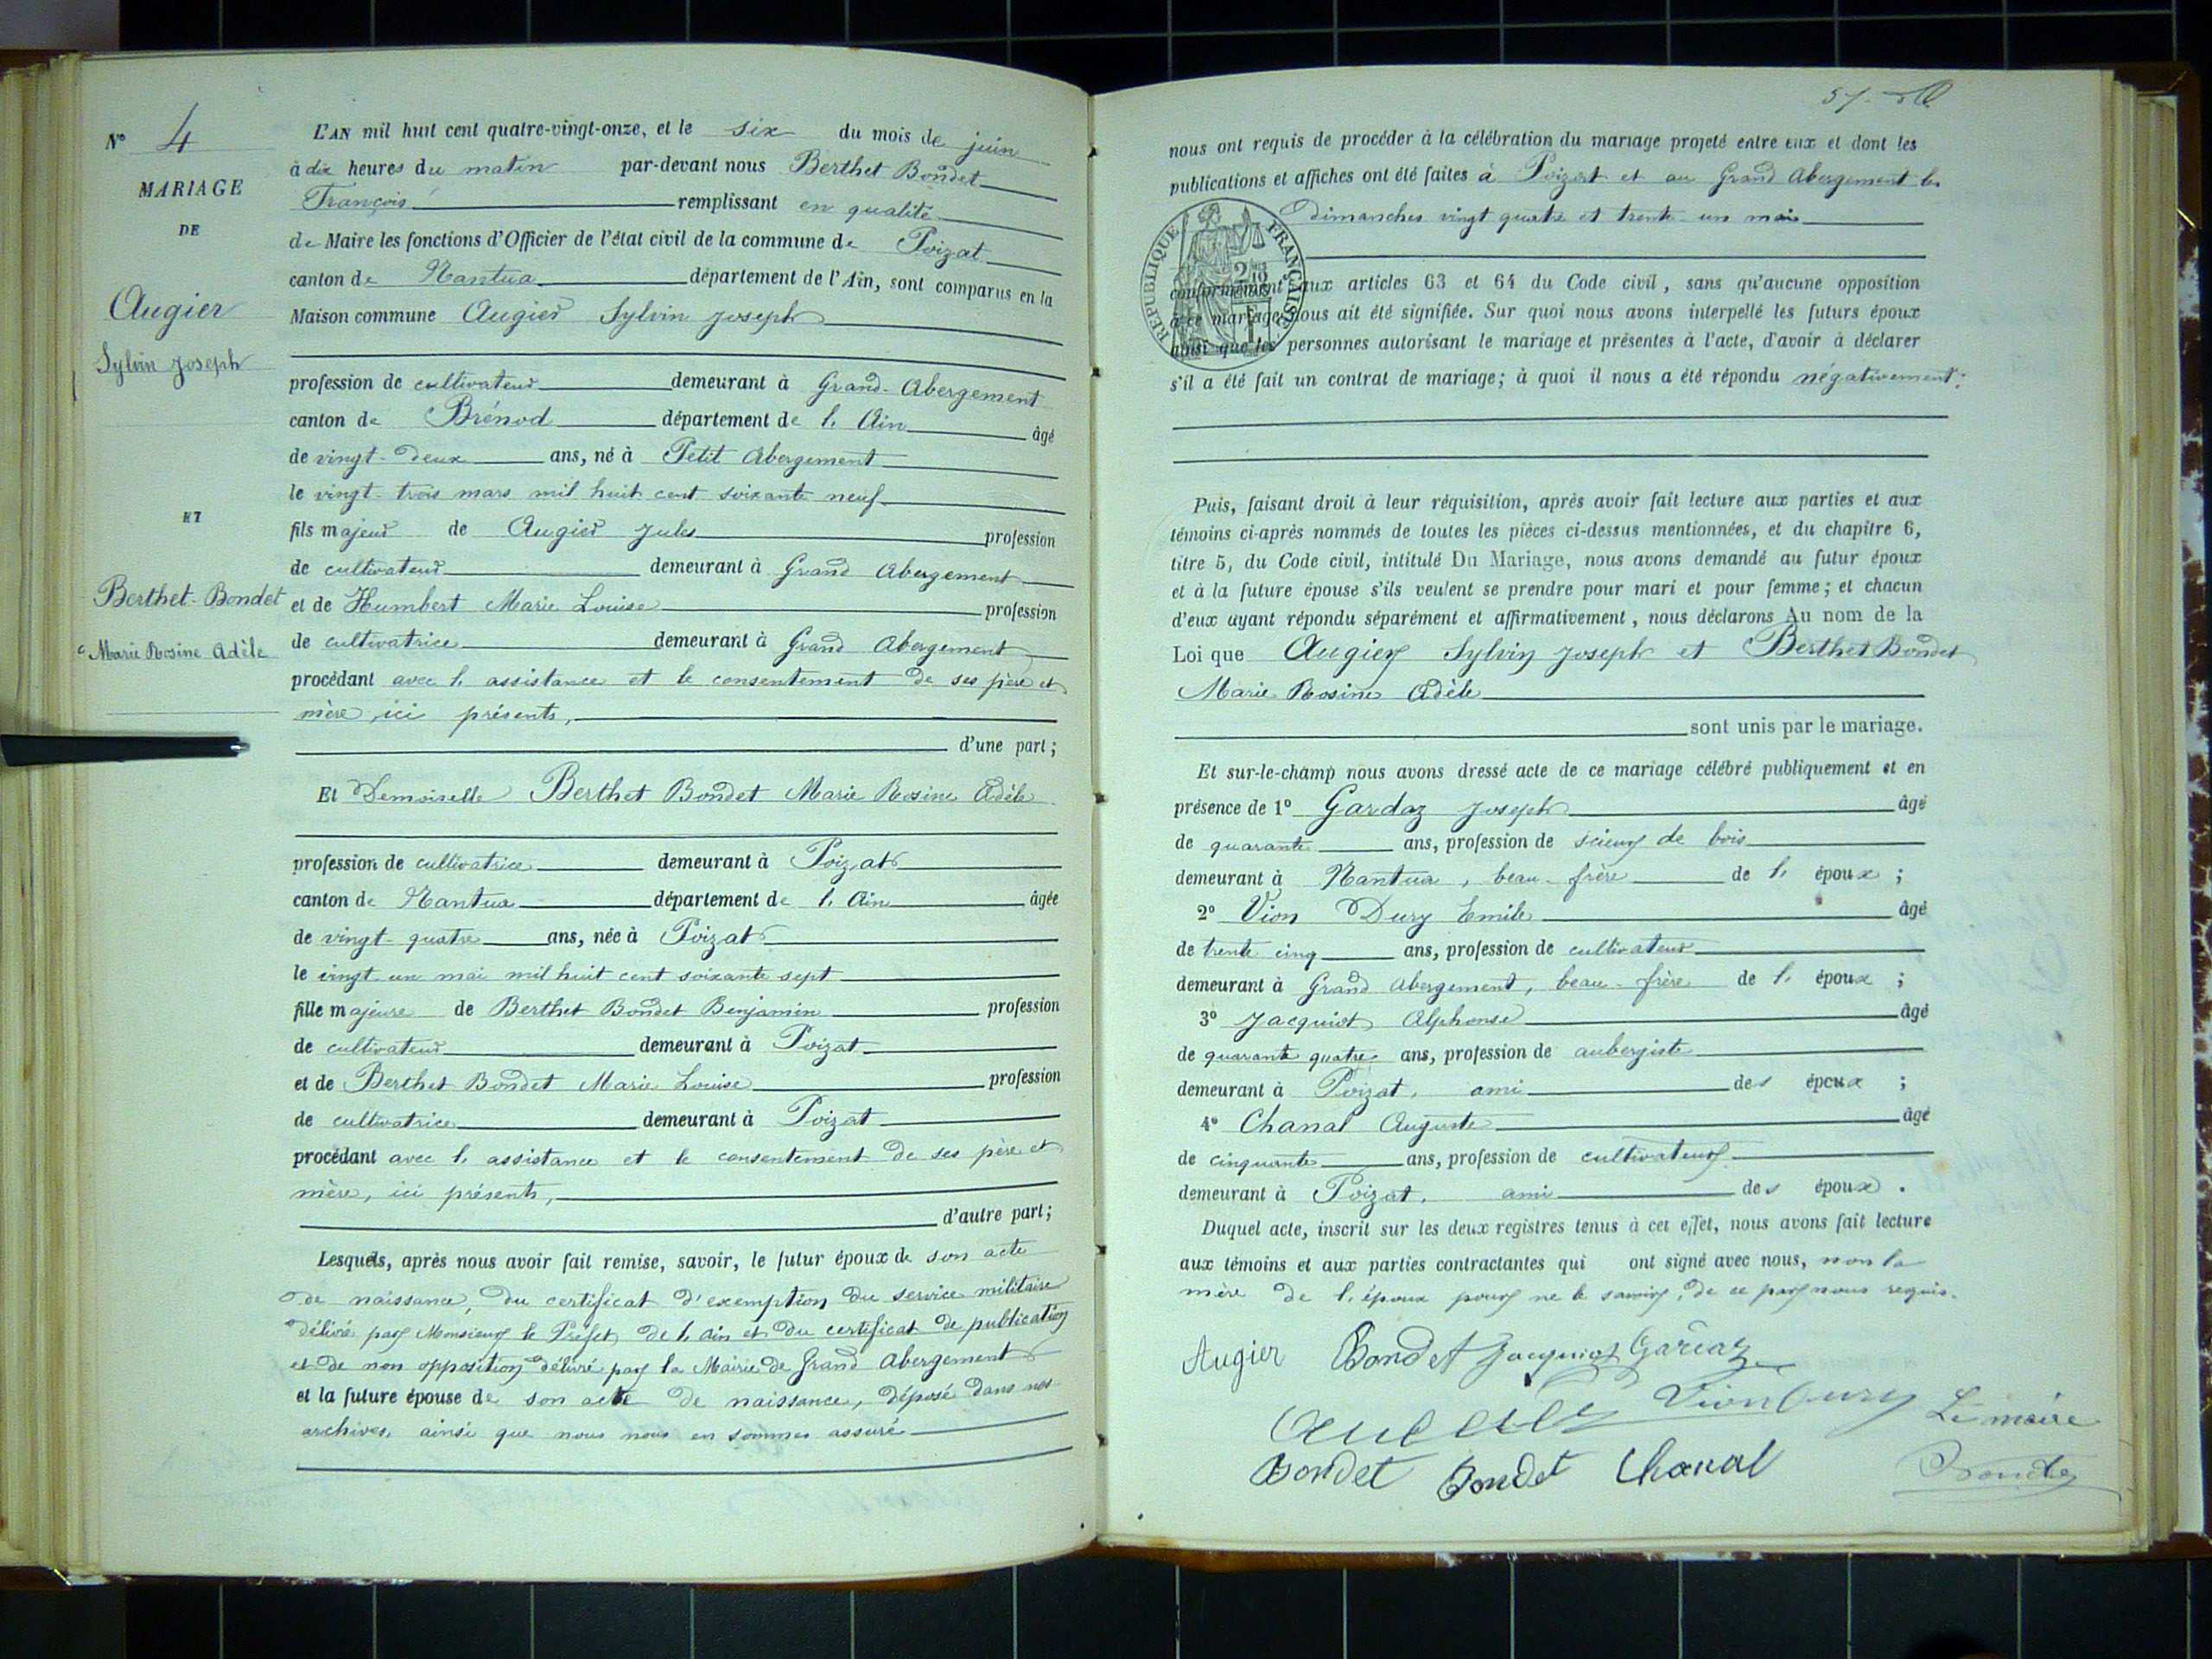 N° 4
MARIAGE
DE
Augier
Sylvin Joseph
ET
Berthet-Bondet
Marie Rosine Adèle
L'AN mil huit cent quatre-vingt-onze, et le six du mois de juin
à dix heures du matin par-devant nous Berthet Bondet
François remplissant en qualité
de Maire les fonctions d'Officier de l'état civil de la commune de Poizat
canton de Nantua département de l'Ain, sont comparus en la
Maison commune Augier Sylvin Joseph
profession de cultivateur demeurant à Grand-Abergement
canton de Brénod département de l'Ain âgé
de vingt-deux ans, né à Petit Abergement
le vingt-trois mars mil huit cent soixante neuf
fils majeur de Augier Jules profession
de cultivateur demeurant à Grand Abergement
et de Humbert Marie Louise profession
de cultivatrice demeurant à Grand Abergement
procédant avec l'assistance et le consentement de ses père et
mère, ici présents,
d'une part;
Et Demoiselle Berthet Bondet Marie Rosine Adèle
profession de cultivatrice demeurant à Poizat
canton de Nantua département de l'Ain âgée
de vingt-quatre ans, née à Poizat
le vingt un mai mil huit cent soixante sept
fille majeure de Berthet Bondet Benjamin profession
de cultivateur demeurant à Poizat
et de Berthet Bondet Marie Louise profession
de cultivatrice demeurant à Poizat
procédant avec l'assistance et le consentement de ses père et
mère, ici présents,
d'autre part;
Lesquels, après nous avoir fait remise, savoir, le futur époux de son acte
de naissance, du certificat d'exemption du service militaire
délivré par Monsieur le Préfet de l'ain et du certificat de publication
et de non opposition délivré par la Mairie de Grand Abergement
et la future épouse de son acte de naissance, déposé dans nos
archives, ainsi que nous nous en sommes assuré
57.
nous ont requis de procéder à la célébration du mariage projeté entre eux et dont les
publications et affiches ont été faites à Poizat et au Grand Abergement les
dimanches vingt quatre et trente-un mai
RÉPUBLIQUE FRANÇAISE
conformément aux articles 63 et 64 du Code civil, sans qu'aucune opposition
à ce mariage nous ait été signifiée. Sur quoi nous avons interpellé les futurs époux
ainsi que les personnes autorisant le mariage et présentes à l'acte, d'avoir à déclarer
s'il a été fait un contrat de mariage; à quoi il nous a été répondu négativement.
Puis, faisant droit à leur réquisition, après avoir fait lecture aux parties et aux
témoins ci-après nommés de toutes les pièces ci-dessus mentionnées, et du chapitre 6,
titre 5, du Code civil, intitulé Du Mariage, nous avons demandé au futur époux
et à la future épouse s'ils veulent se prendre pour mari et pour femme; et chacun
d'eux ayant répondu séparément et affirmativement, nous déclarons Au nom de la
Loi que Augier Sylvin Joseph et Berthet Bondet
Marie Rosine Adèle
sont unis par le mariage.
Et sur-le-champ nous avons dressé acte de ce mariage célébré publiquement et en
présence de 1° Gardaz Joseph âgé
de quarante ans, profession de scieur de bois
demeurant à Nantua, beau-frère de l'époux;
2° Vion Dury Emile âgé
de trente cinq ans, profession de cultivateur
demeurant à Grand Abergement, beau-frère de l'époux;
3° Jacquiot Alphonse âgé
de quarante quatre ans, profession de aubergiste
demeurant à Poizat, ami des époux;
4° Chanal Auguste âgé
de cinquante ans, profession de cultivateur
demeurant à Poizat, ami des époux.
Duquel acte, inscrit sur les deux registres tenus à cet effet, nous avons fait lecture
aux témoins et aux parties contractantes qui ont signé avec nous, non la
mère de l'époux pour ne le savoir, de ce par nous requis.
Augier Bondet Jacquiot
Vion Dury Le maire
Bondet Bondet Chanal Bondet